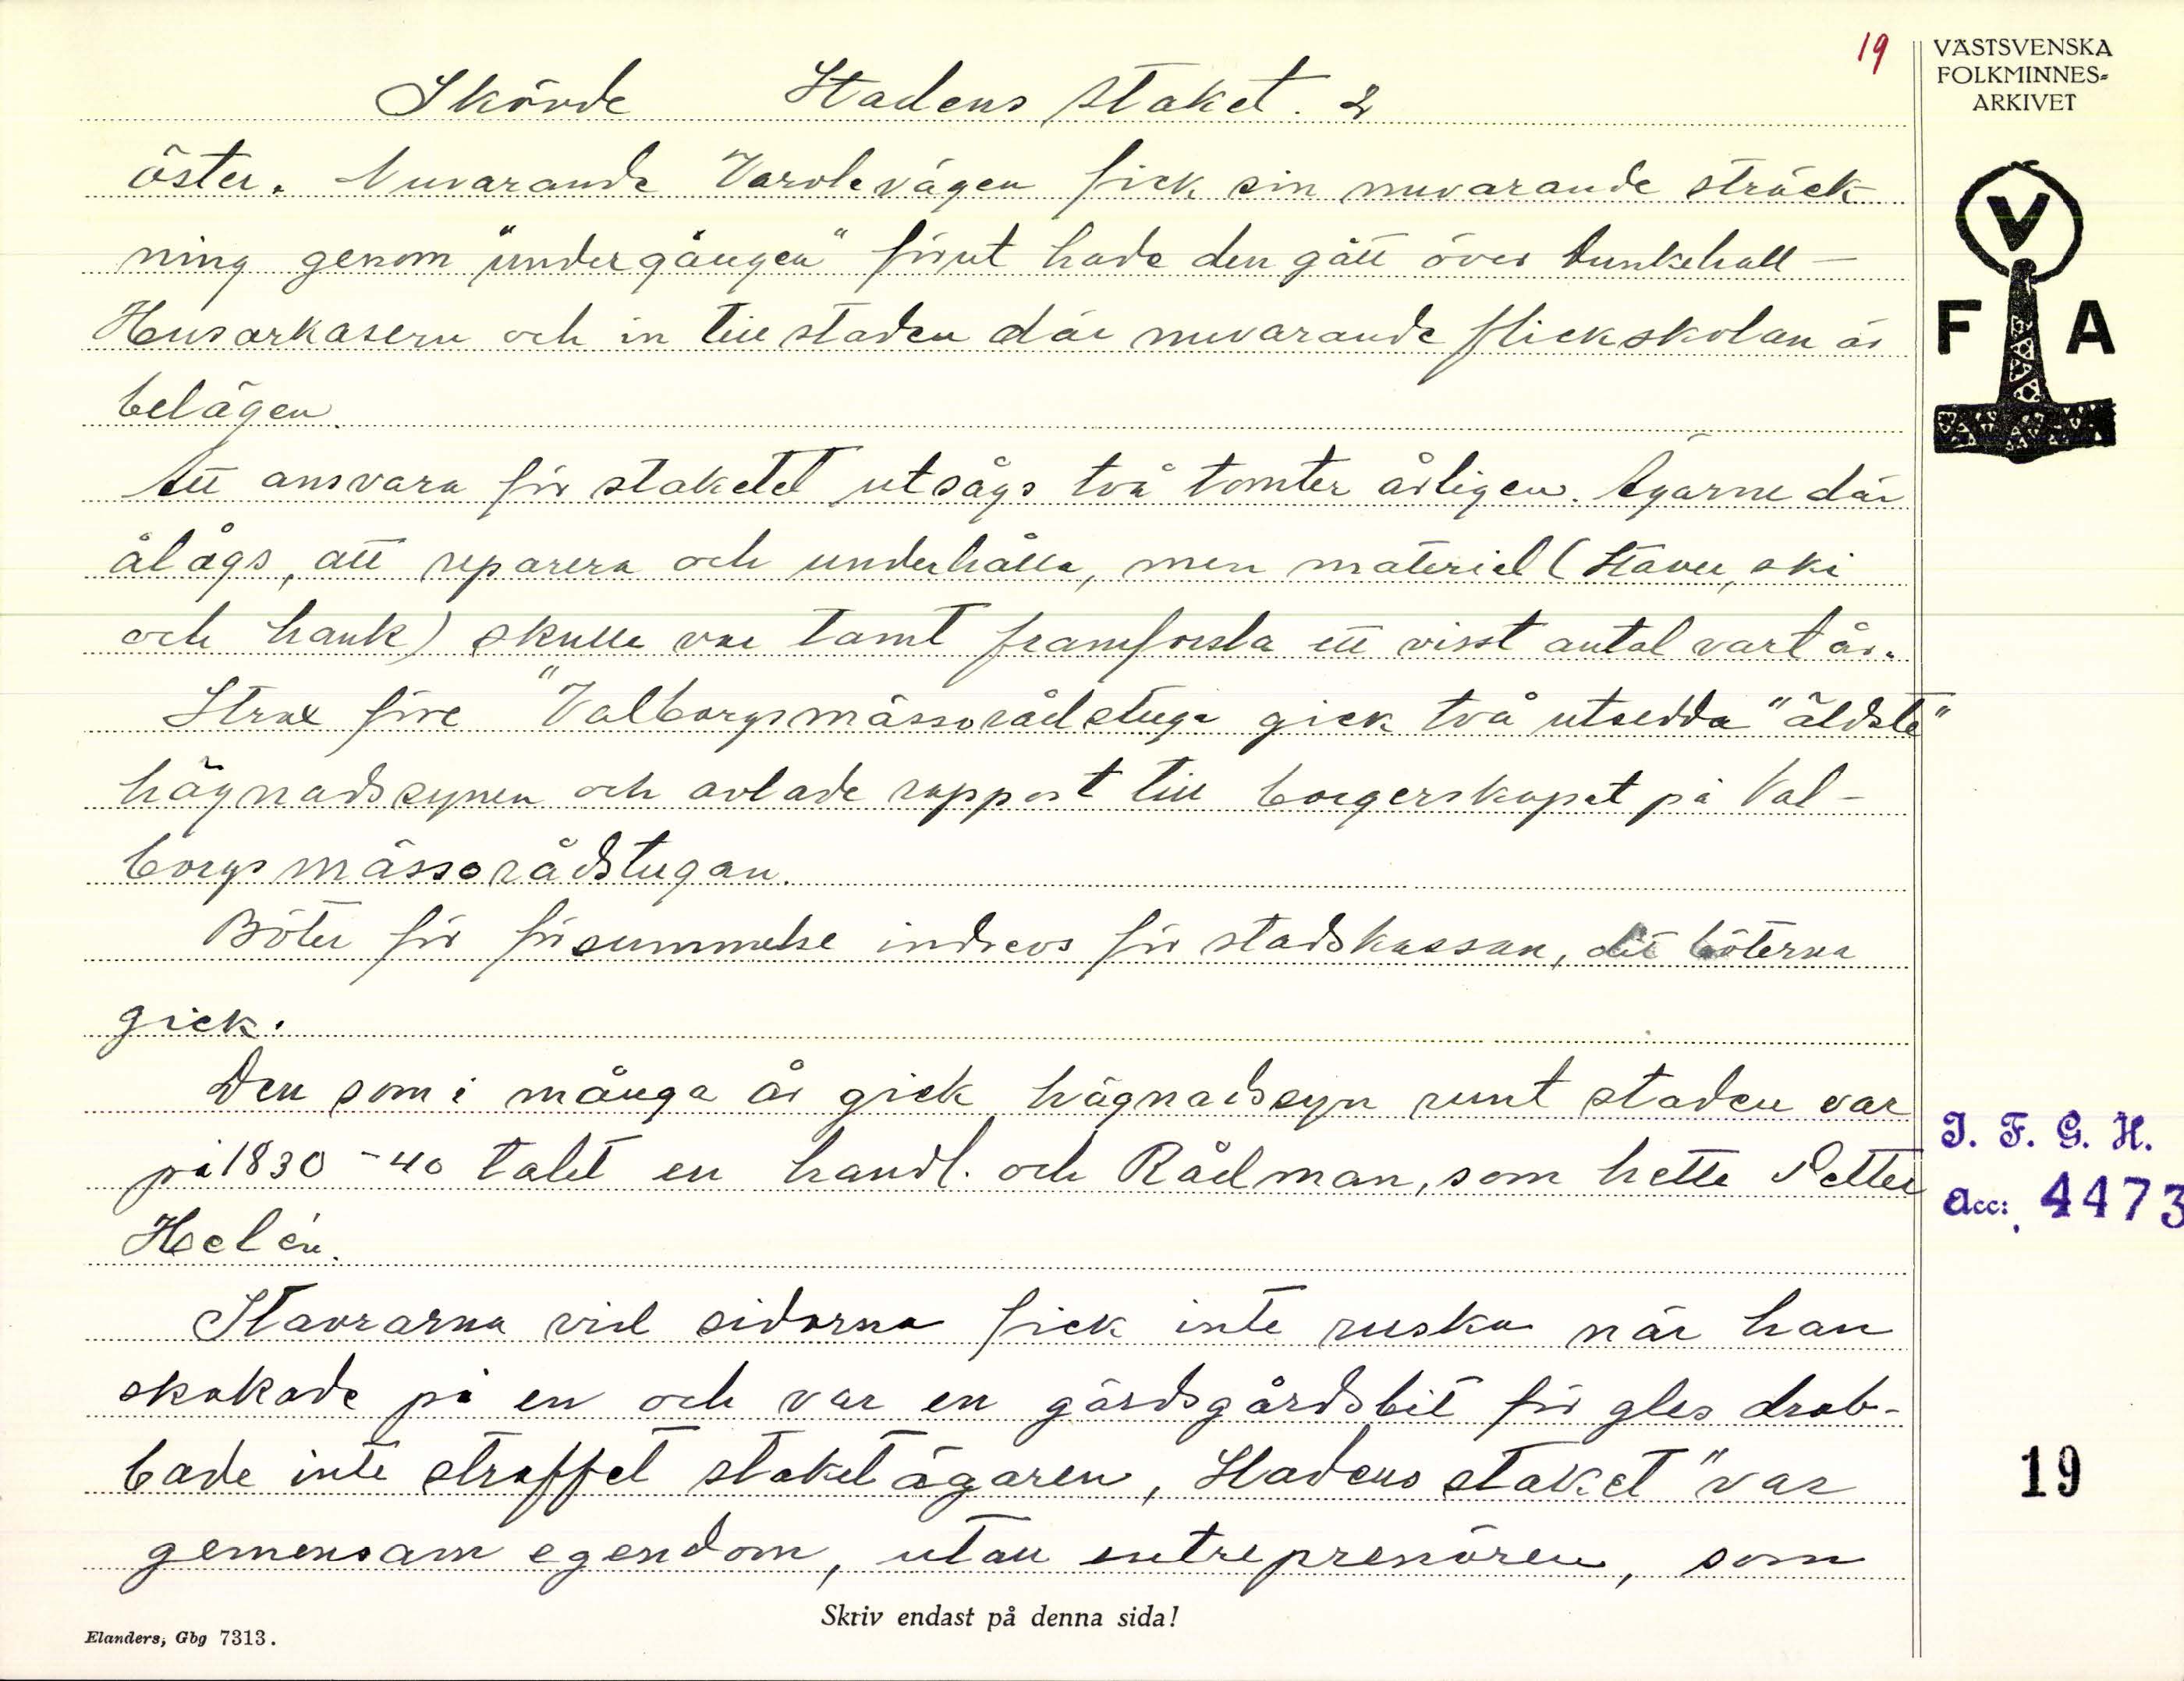 19
VÄSTSVENSKA
FOLKMINNES=
ARKIVET
Skövde Stadens staket. 2
öster. Nuvarande Varolevägen fick sin nuvarande sträck
ning genom "undergången" förut hade den gått över Dunkehall -
Husarkasern och in till staden där nuvarande flickskolan är
belägen.
Att ansvara för staketet utsågs två tomter årligen. Ägarne där
ålågs, att reparera och underhålla, men material (Stavu, ski
och hank) skulle var tomt framforsla ett visst antal vart år.
Strax före "Valborgsmässorådstuga gick två utsedda "äldste"
hägnadssynen och avlade rapport till borgerskapet på Val-
borgsmässorådstugan.
Böter för försummelse indrevs för stadskassan, dit böterna
gick.
Den som i många år gick hägnadssyn runt staden var
på 1830-40 talet en handl. och Rådman, som hette Petter
Helén.
Stavrarna vid sidorna fick inte ruska när han
skakade på en och var en gärdsgårdsbit för gles drab-
bade inte straffet staketägaren, Stadens staket" var
gemensam egendom, utan entreprenören, som
V
F A
I. F. G. H.
Acc: 4473
19
Skriv endast på denna sida!
Elanders, Gbg 7313.